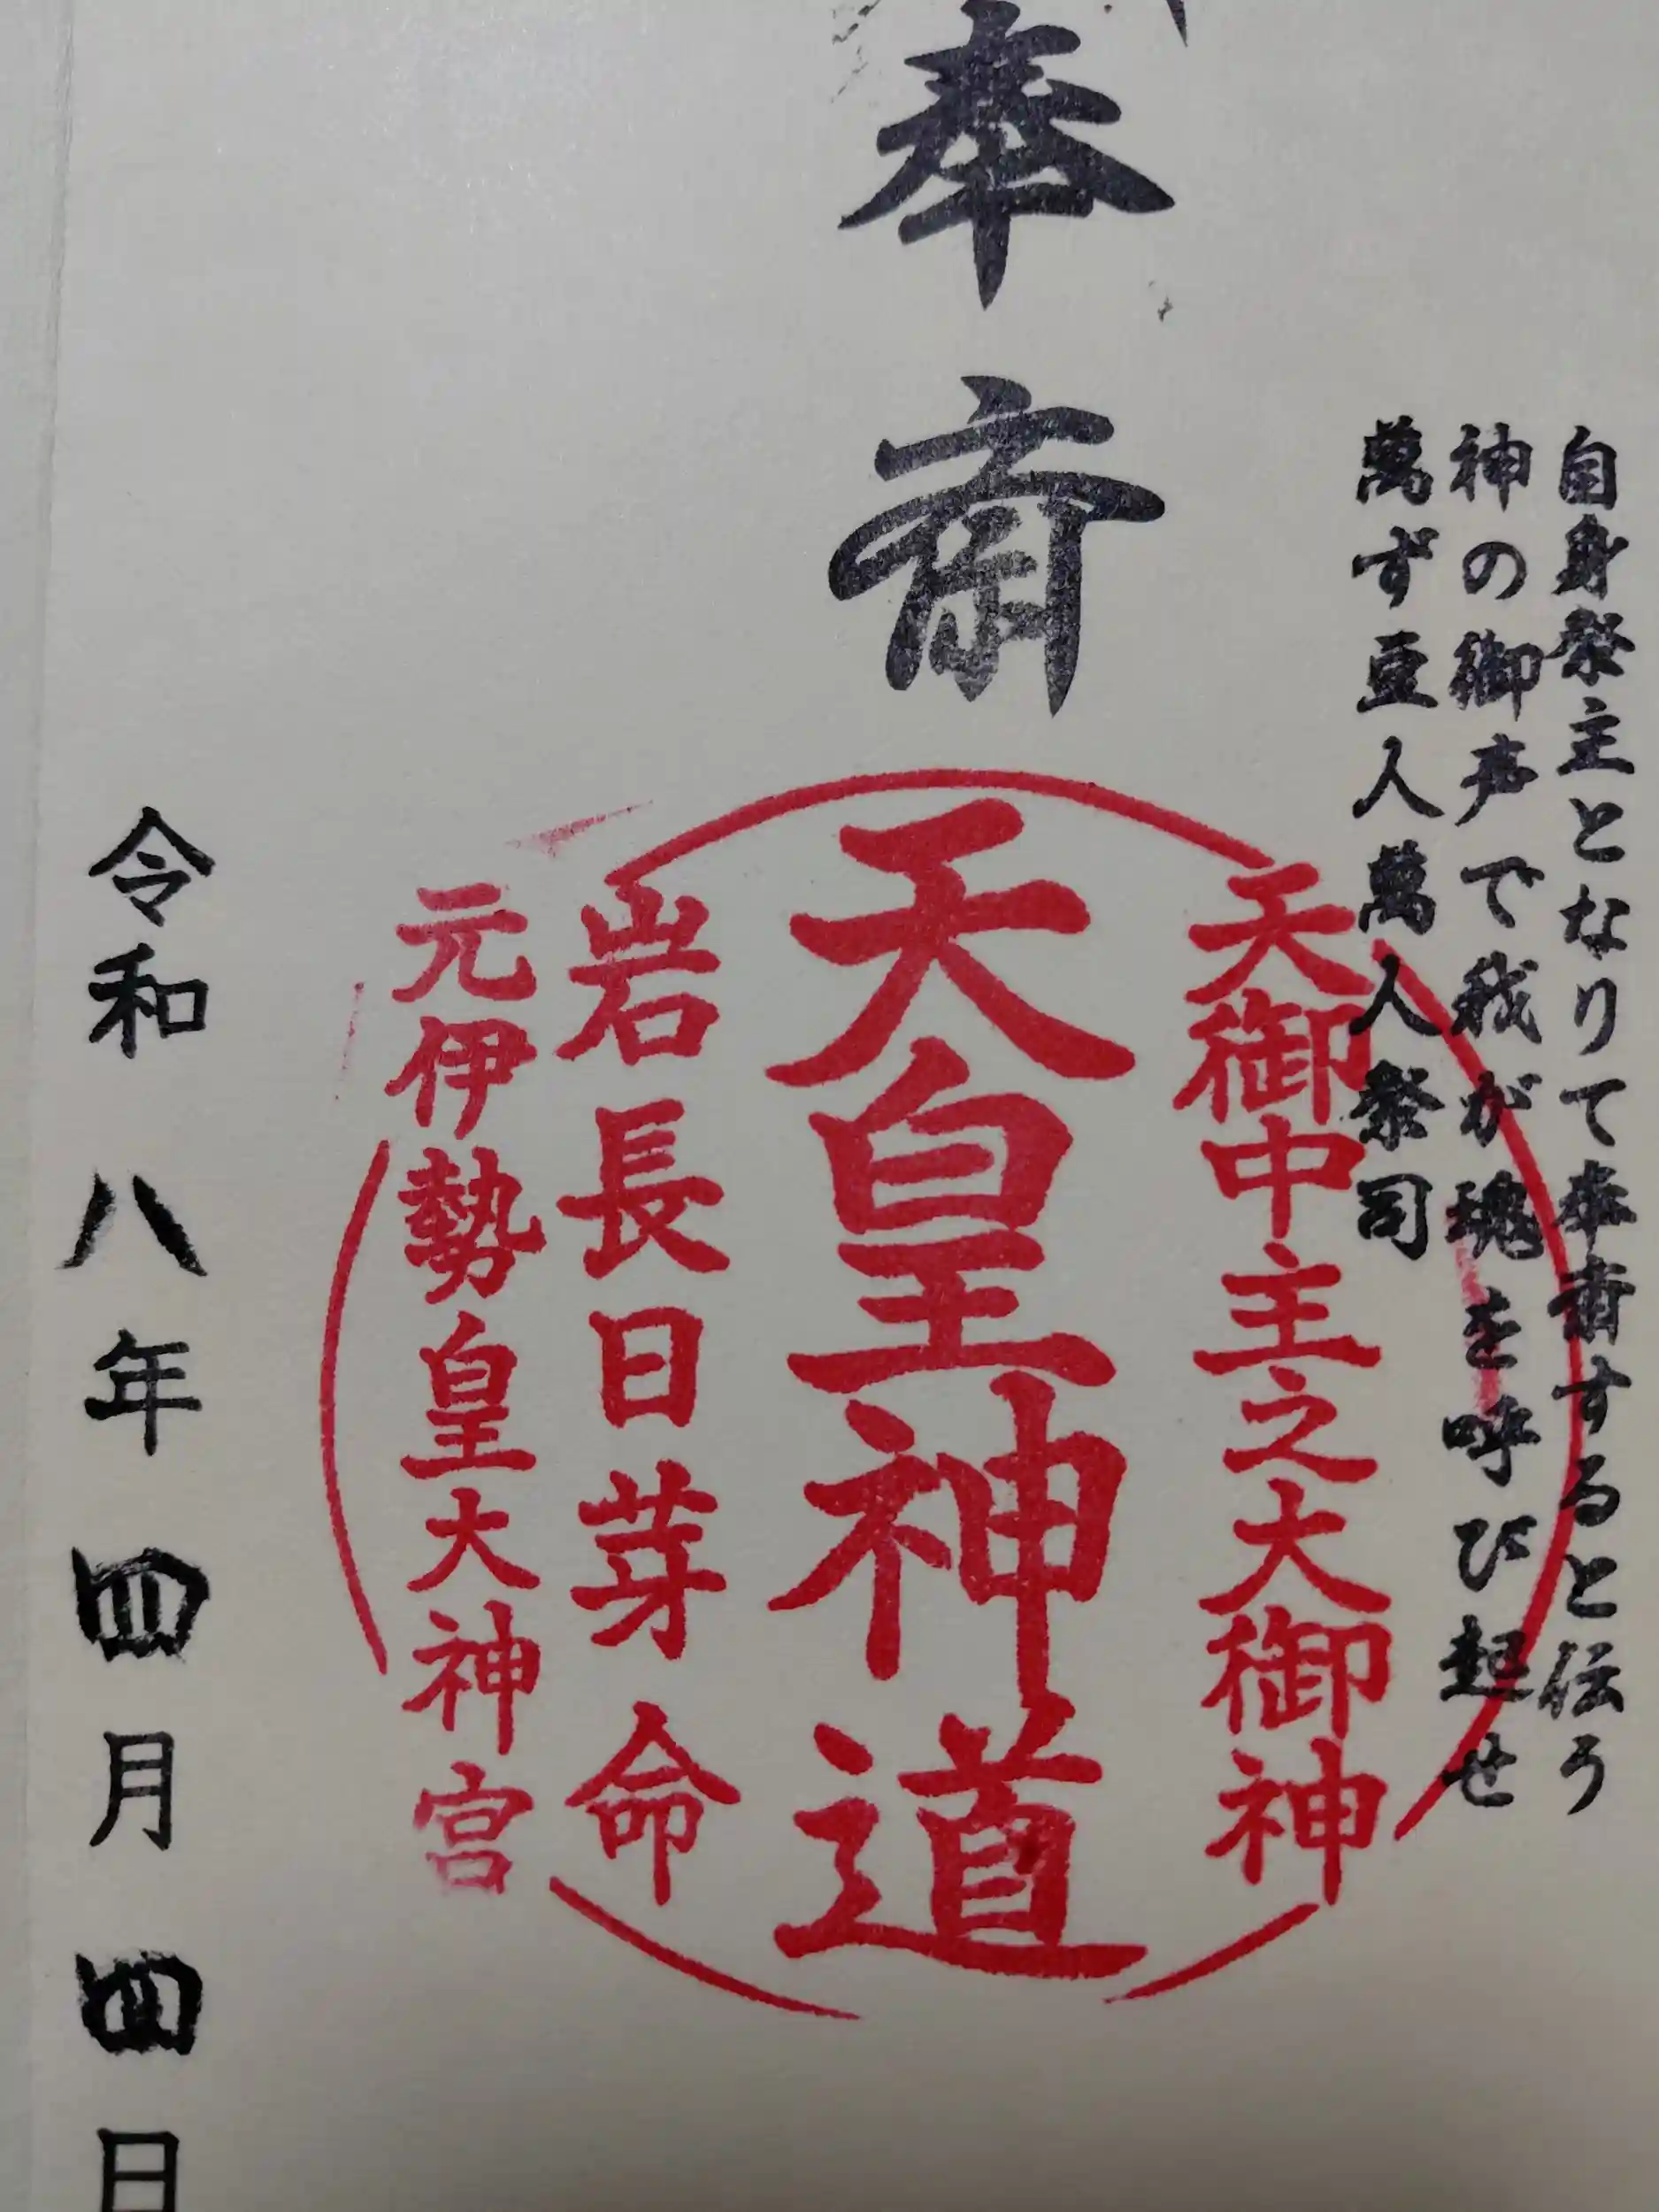 自身祭主となりて奉斎すると伝う
神の御声で我が魂を呼び起せ
萬ず豆人萬人祭司
天御中主之大御神
奉斎
天皇神道
岩長日芽命
元伊勢皇大神宮
令和八年四月四日